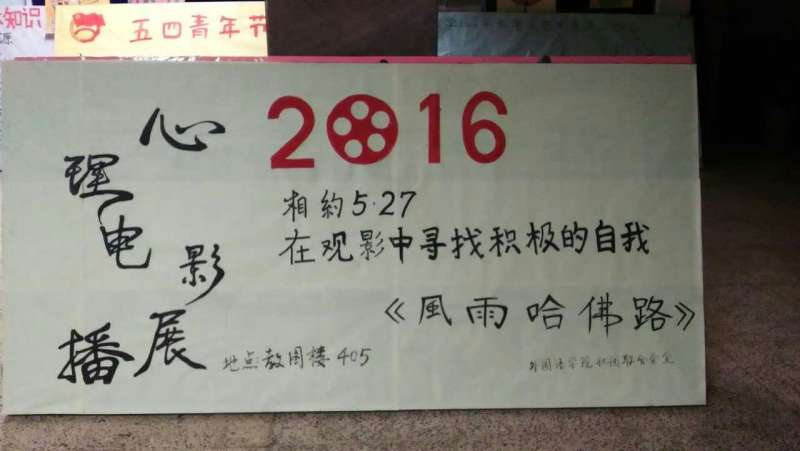 知识
五四青年节
2016
心理电影播展
相約5·27
在观影中寻找积极的自我
《風雨哈佛路》
地点教用楼405
外国语学院社团联合会宣